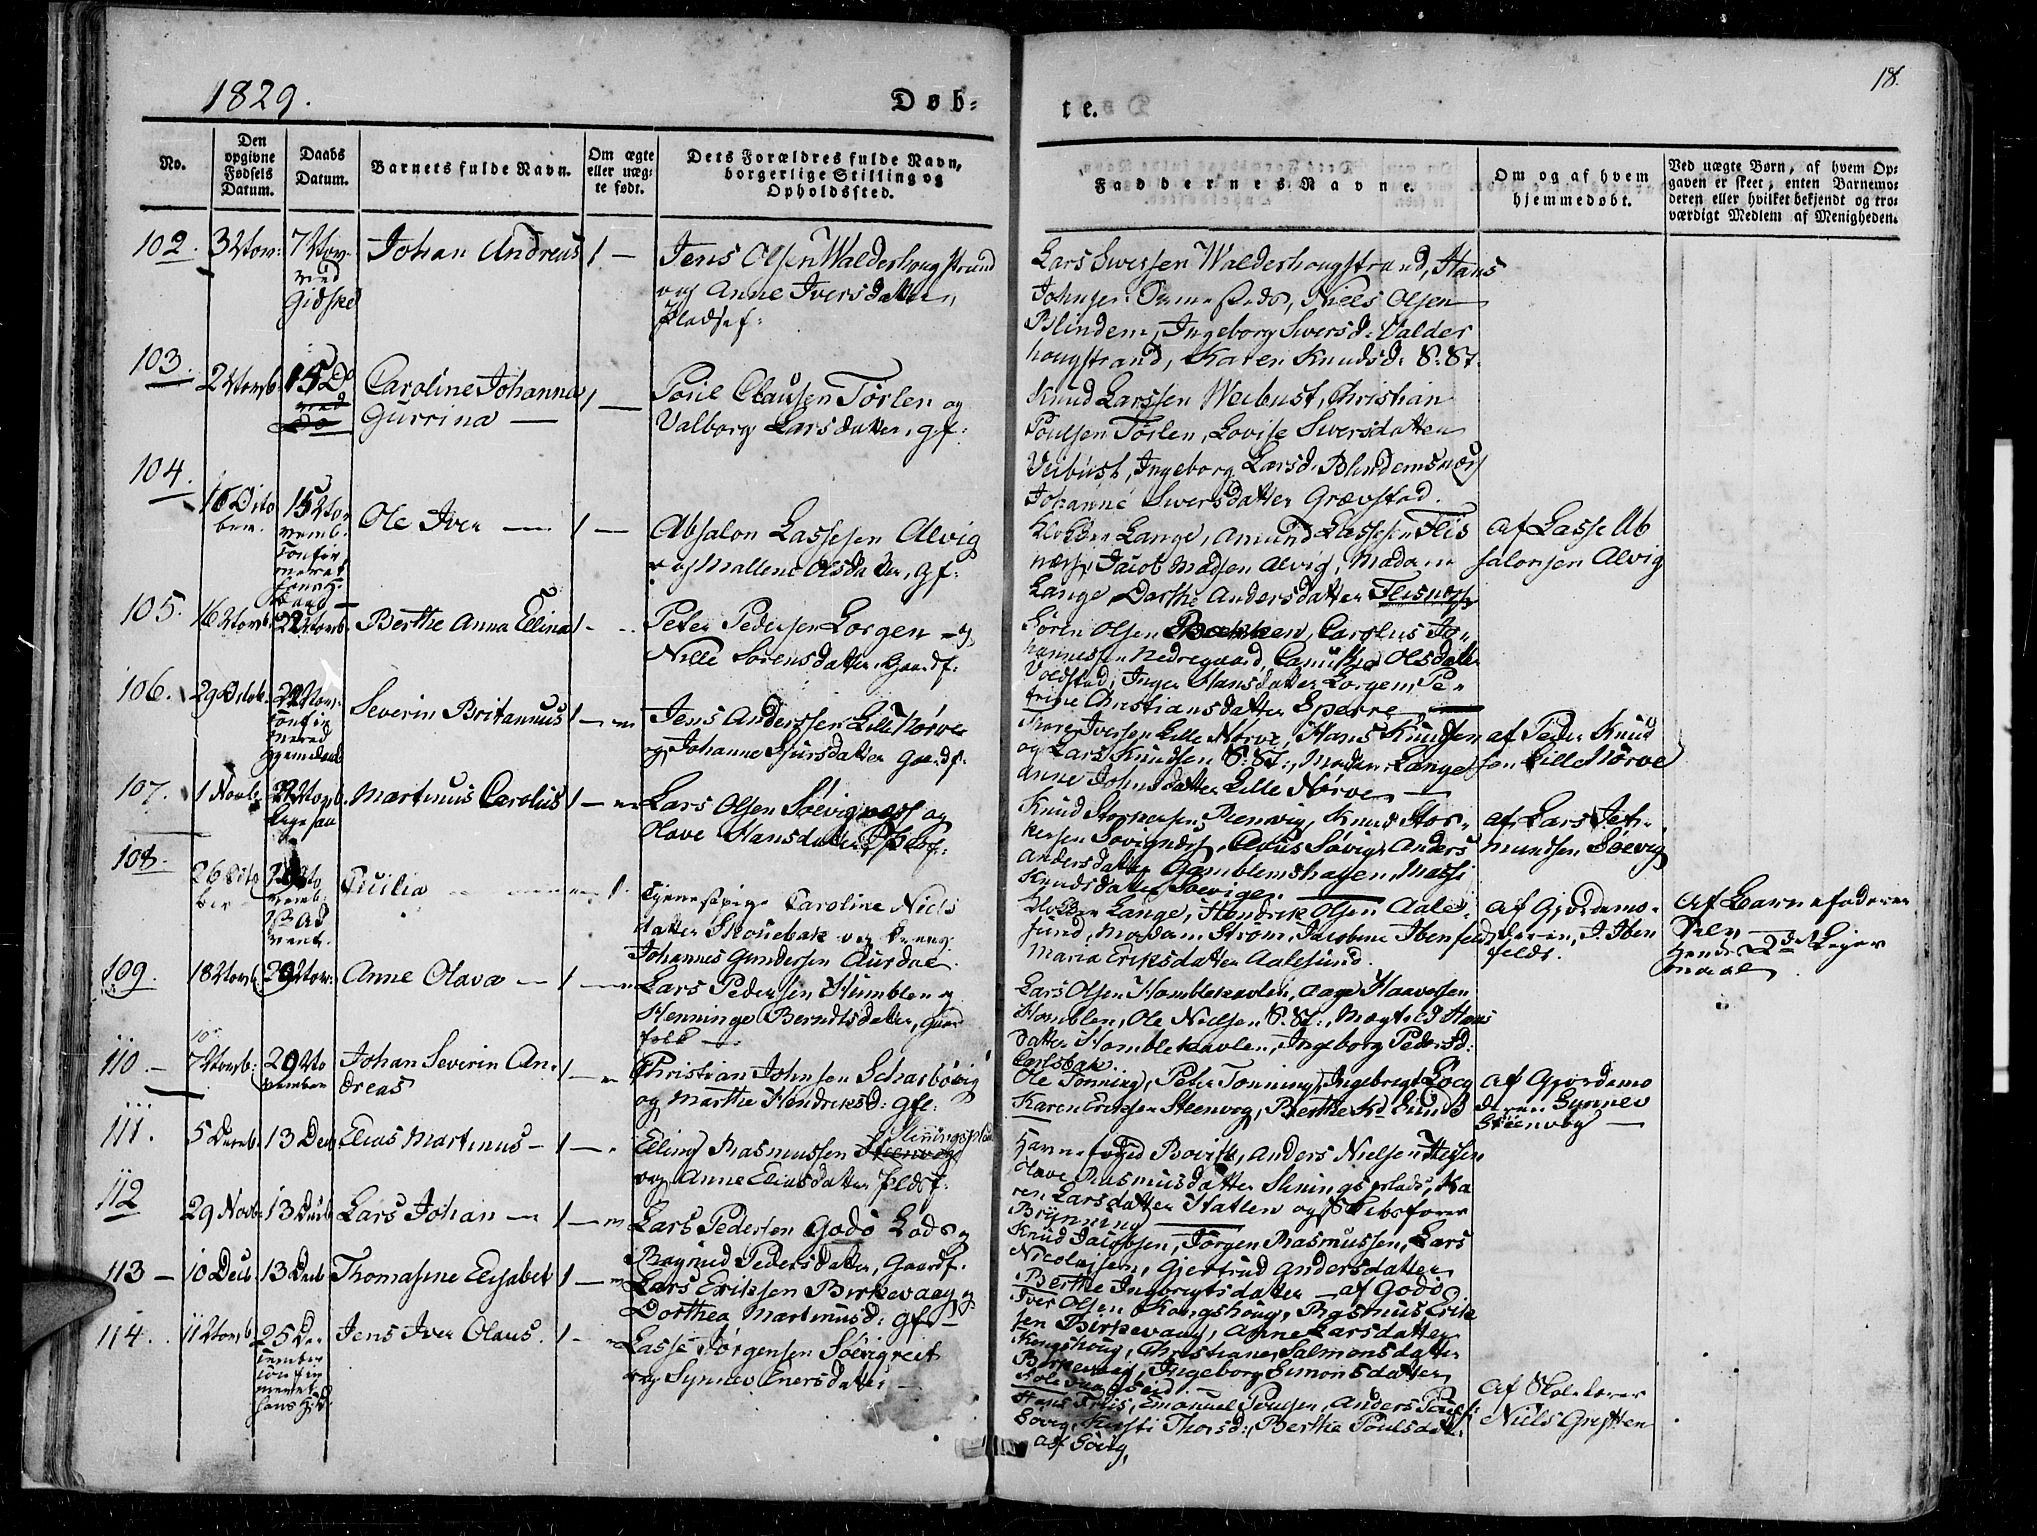 1829.
Døb-
te.
18.
No.
Den opgivne Fødsels Datum.
Daabs Datum.
Barnets fulde Navn.
Om ægte eller uægte født.
Dets Forældres fulde Navn, borgerlige Stilling og Opholdssted.
Faddernes Navne.
Om og af hvem hjemmedøbt.
Ved uægte Børn, af hvem Opgaven er skeet, enten Barnemoderen eller hvilket bekjendt og troværdigt Medlem af Menigheden.
102.
3 Novr:
7 Novr.
ved
Gidske
Johan Andreas
1 —
Jens Olsen Walderhougstrand
og Anne Iversdatter,
Pladsf:
Lars Siversen Walderhougstrand, Hans
Johnsen Sammesteds, Niels Olsen
Blindem, Ingeborg Siversd. Valder
hougstrand, Karen Knudsd: S. St.
103.
2 Novb:
15 Do
ved
do
Caroline Johanna
Gurrina —
1 —
Poul Clausen Tørlen og
Valborg Larsdatter, gf:
Knud Larssen Weibust, Christian
Poulsen Tørlen, Lovise Siversdatter
Veibust, Ingeborg Larsd. Blindemsnæs
Johanne Siversdatter Grævstad.
104.
16 Octo
ber.
15 No
vemb.
Ole Iver —
1 —
Absalon Lassesen Alvig
og Mallene Olsdatter, gf:
Klokker Lange, Amund Lassesen Flis
næss, Jacob Madsen Alvig, Madam
Lange, Dorthe Andersdatter Flisnæss
af Lasse Ab
salonsen Alvig
105.
16 Novb:
22 Novb.
Berthe Anna Ellina
1 -
Peter Pedersen Lorgen og
Nille Sørensdatter, Gaardf:
Søren Olsen Bakken, Carolus Jo-
hannessen Nedregaard, Olsdatter
Voldstad, Inger Hansdatter Lorgen, Pe-
trine Christiansdatter Sperre
106.
29 Octob.
22 Novr.
Severin Britannus
1 —
Jens Anderssen Lille Nørve
og Johanne Sjursdatter Gaardf:
Iversen Lille Nørve, Hans Knudsen
og Lars Knudsen S. St:, Madam Lange
Anne Johnsdatter Lille Nørve —
af Peder Knud
sen Lille Nørve
107.
1 Novbr
22 Novb.
ligesaa
Martinus Carolus
1 —
Lars Olsen Søevignæss og
Olave Hansdatter
Knud Storkersen Renvig, Knud Stor-
kersen Sovignæss, Claus Søvig, Anders
Andersdatter Gamblemshagen, Massi
Knudsdatter Søevigen
af Lars Jet-
mundsen Søevig
108.
26 Octo
ber
29 No
vemb.
1 Ad
vent.
Cicilia
1.
Tjenestepige Caroline Niels
datter Skouebak og Dreng
Johannes Gundersen Aurdal.
Klokker Lange, Hendrik Olsen Aale-
sund, Madam Strøm, Jacobine Ibenfeldt
Maria Eriksdatter Aalesund.
af Gjordemo-
deren, J. Iben
feldt.
af Barnefaderen
Selv
109.
18 Novb
29 Novr.
Anne Olava
— 1 —
Lars Pedersen Humblen og
Henninge Berndtsdatter, Gaard
folk —
Lars Olsen Homblehavlen, Aage Haavessen
Homblen, Ole Nielsen S. St:, Magtild Hans
datter Homblehavlen, Ingeborg Pedersd:
Carlsbak.
110 -
7 Novb:
29 No
vember
Johan Severin An-
dreas
1 —
Christian Johnsen Scharbøvig
og Marthe Hendriksd: gf:
Ole Tonning, Peter Tonning, Ingebrigt Loeg
Karen Eriksen Steenvog, Berthe Kd. Lund
af Gjordemo
deren Synnev
Steenvog —
111.
5 Decmb:
13 Dec
Elias Martinus -
1 —
Elling Rasmussen Sliningsplad
og Anne Eliasdatter Pldsf.
Havnefoged Bovitz, Anders Nielsen Hesen
Olave Rasmusdatter Slinings plads, Ka
ren Larsdatter Hatlen og Skibsfører
Brynning
112
29 Novb.
13 Decb
Lars Johan —
1 —
Lars Pedersen Godø Lods og
Ragnild Pedersdatter, Gaardf.
Knud Jacobsen, Jørgen Rasmussen, Lars
Nicolaisen, Gjertrud Andersdatter
Berthe Ingebrigtsdatter — af Godø
113 —
10 Decb
13 Decb
Thomasine Elisabet
1 —
Lars Eriksen Birkevaag og
Dorthea Martinusd: gf:
Iver Olsen Kongshoug, Rasmus Erik
sen Birkevaag, Anne Larsdatter
Kongshoug, Christiane Salmonsdatter
Birkevaag, Ingeborg Simonsdatter
114.
11 Novb
25 De
cember
Jens Iver Olaus.
1 -
Lasse Jørgensen Søevigreit
og Synnev Enersdatter —
Hans Friis, Emanuel Poulsen, Anders Poulse
Sovig, Kirsti Thorsd:, Berthe Poulsdat.
af Søvig,
af Skolelærer
Niels Gretten